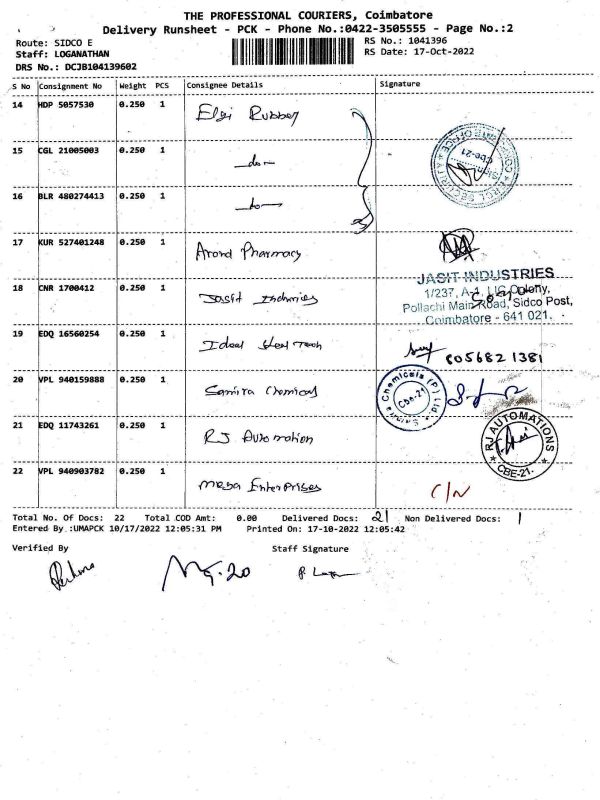 THE PROFESSIONAL COURIERS, Coimbatore
Delivery Runsheet - PCK - Phone No.:0422-3505555 - Page No.:2
Route: SIDCO E
RS No.: 1041396
Staff: LOGANATHAN
RS Date: 17-Oct-2022
DRS No.: DCJB104139602
S No Consignment No Weight PCS Consignee Details Signature
14 HDP 5057530 0.250 1 Elgi Rubber
15 CGL 21005003 0.250 1 -do-
CBE-21
16 BLR 480274413 0.250 1 -do-
17 KUR 527401248 0.250 1 Arond Pharmacy
18 CNR 1700412 0.250 1 Jasit Industries
JASIT INDUSTRIES
1/237, A-4, LIC Colony,
Pollachi Main Road, Sidco Post,
Coimbatore - 641 021.
19 EDQ 16560254 0.250 1 Ideal Steel Tech
8056821381
20 VPL 940159888 0.250 1 Samira Chemicals
Samira Chemicals (P) Ltd.
Cbe-21
21 EDQ 11743261 0.250 1 RJ Automation
RJ AUTOMATIONS
CBE-21.
22 VPL 940903782 0.250 1 Mega Enterprises C/N
Total No. Of Docs: 22 Total COD Amt: 0.00 Delivered Docs: 21 Non Delivered Docs: 1
Entered By :UMAPCK 10/17/2022 12:05:31 PM Printed On: 17-10-2022 12:05:42
Verified By Staff Signature